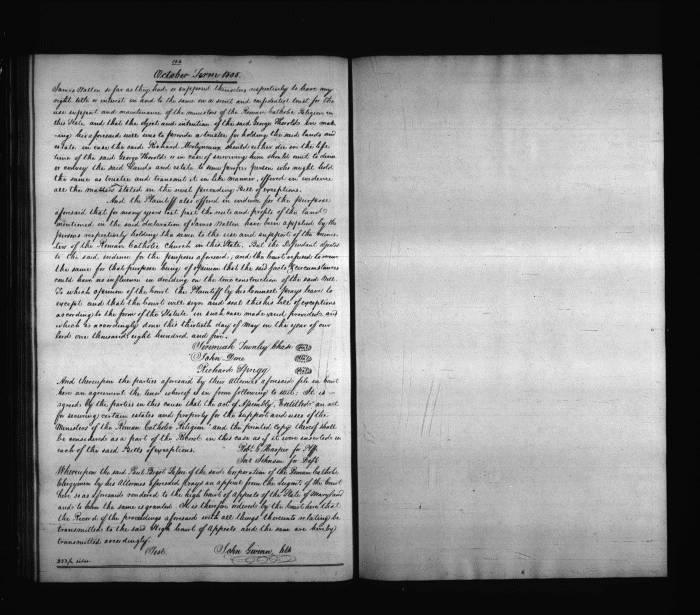 October Term 1805.
James Walton so far as they had, or supposed themselves respectively to have any
right title or interest in and to the same on a secret and confidential trust for the
use support and maintenance of the ministers of the Roman Catholic Religion in
this State and that the object and intention of the said George Thorolds in mak-
ing his aforesaid will was to provide a trustee for holding the said lands and
estate in case the said Richard Molyneux should either die in the life
time of the said George Thorolds or in case of surviving him should omit to devise
or convey the said lands and estate to some proper person who might hold
the same as trustee and transmit it in like manner, offered in evidence
all the matters stated in the next preceding Bill of exceptions.
And the Plaintiff also offered in evidence for the purpose
aforesaid that for many years last past the rents and profits of the land
mentioned in the said declaration of James Walton have been applied by the
persons respectively holding the same to the use and support of the minis-
ters of the Roman Catholic Church in this State. But the Defendant objected
to the said evidence for the purposes aforesaid; and the court refused to receive
the same for that purpose being of opinion that the said facts & circumstances
could have no influence in deciding on the true construction of the said Will.
To which opinion of the court the Plaintiff by his counsel prays leave to
except and that the court will sign and seal this his bill of exceptions
according to the form of the Statute in such case made and provided and
which is accordingly done this thirtieth day of May in the year of our
lord one thousand eight hundred and five.
Jeremiah Townley Chase
John Done
Richard Sprigg
And thereupon the parties aforesaid by their Attornies aforesaid file in court
here an agreement the tenor whereof is in form following to wit: It is
agreed by the parties in this cause that the act of Assembly, Entitled "an act
for securing certain estates and property for the support and uses of the
Ministers of the Roman Catholic Religion" and the printed copy thereof shall
be considered as a part of the Record in this case as if it were inserted in
each of the said Bills of exceptions.
Robt. G. Harper for Plff
Jno. Johnson for Deft
Whereupon the said Paul Bigot Lessee of the said Corporation of the Roman Catholic
Clergymen by his Attorney aforesaid prays an appeal from the judgment of the court
here so as aforesaid rendered to the high court of appeals of the State of Maryland
and to him the same is granted. It is therefore ordered by the court here that
the Record of the proceedings aforesaid with all things thereunto relating be
transmitted to the said High Court of Appeals and the same are hereby
transmitted accordingly.
Test. John Gwinn, Clk